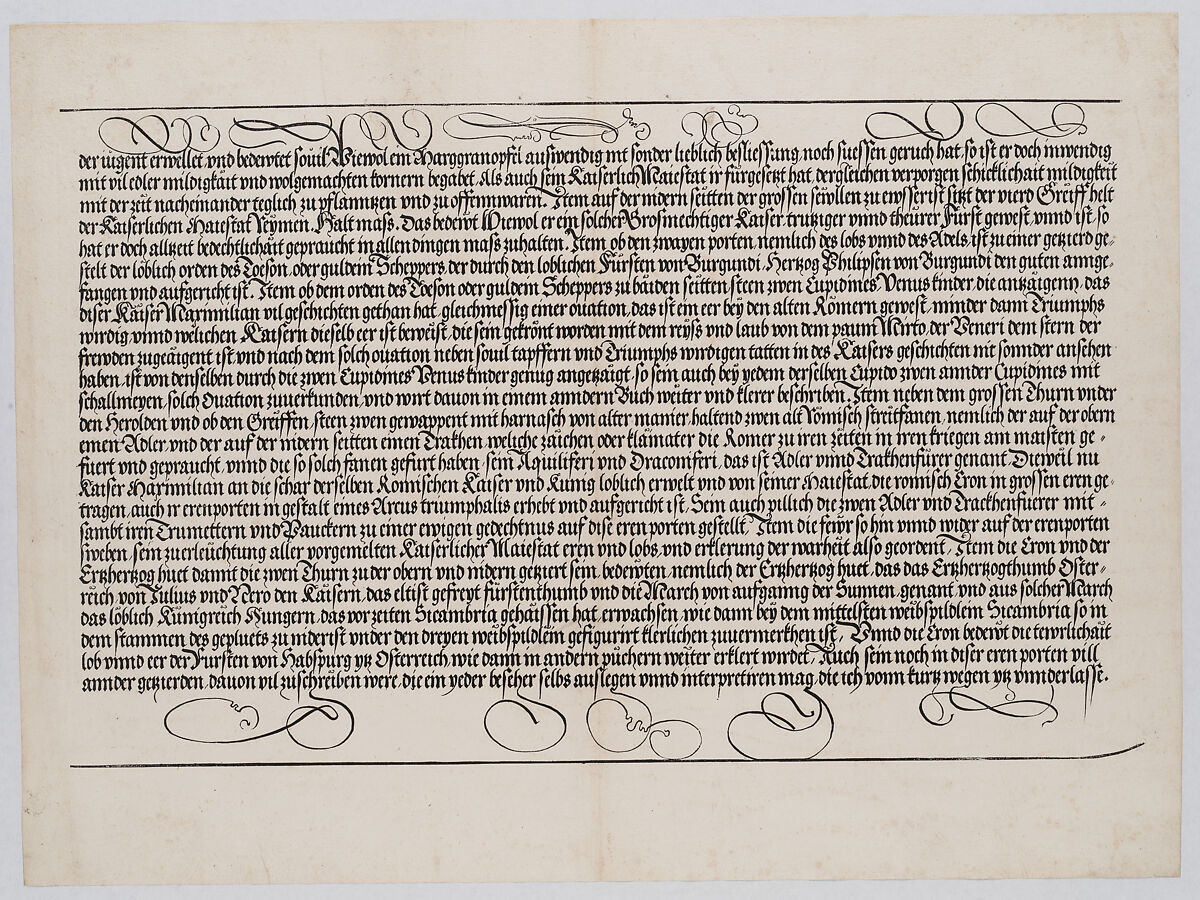 der iugent erwellet, vnd bedewtet souil, Wiewol ein Marggranopfel auswendig nit sonder lieblich besliessung, noch suessen geruch hat, so ist er doch inwendig
mit vil edler mildigkait vnd wolgemachten kornern begabet, Als auch sein Kaiserlich Maiestat ir fürgesetzt hat, dergleichen verporgen schicklichait mildigkeit
mit der zeit nacheinander teglich zu pflanntzen vnd zu offennwaren. Item auf der nidern seitten der grossen sewllen zu ewsserist sitzt der vierd Greiff helt
der Kaiserlichen Maiestat Reymen. Halt mass. Das bedewt Wiewol er ein solcher Grosmechtiger Kaiser, trutziger vnnd theurer Fürst gewest, vnnd ist, so
hat er doch alltzeit bedechtlichait gepraucht in allen dingen mass zuhalten. Item ob den zwayen porten, nemlich des lobs vnnd des Adels, ist zu einer getzierd ge-
stelt der löblich orden des Toeson, oder guldein Scheppers, der durch den loblichen Fürsten von Burgundi, Hertzog Philipsen von Burgundi den guten annge-
fangen vnd aufgericht ist. Item ob dem orden des Toeson oder guldem Scheppers zu baiden seitten steen zwen Cupidines, Venus kinder, die antzaigenn, das
diser Kaiser Maximilian vil geschichten gethan hat, gleichmessig einer ouation, das ist ein eer bey den alten Römern gewest, minder dann Triumphs
wirdig, vnnd welichen Kaisern dieselb eer ist beweist, die sein gekrönt worden mit dem reyss vnd laub von dem paum Mirto, der Veneri dem stern der
frewden zugeaigent ist, vnd nach dem solch ouation neben souil tapffern vnd Triumphs wirdigen tatten in des Kaisers geschichten nit sonnder ansehen
haben, ist von denselben durch die zwen Cupidines Venus kinder genug angetzaigt, so sein auch bey yedem derselben Cupido zwen annder Cupidines mit
schallmeyen, solch Ouation zuuerkunden, vnd wirt dauon in einem anndern Buch weiter vnd klerer beschriben. Item neben dem grossen Thurn vnder
den Herolden vnd ob den Greiffen, steen zwen gewappent mit harnasch von alter manier, haltend zwen alt Römisch streitfanen, nemlich der auf der obern
einen Adler, vnd der auf der nidern seitten einen Trakhen, weliche zaichen oder klainater die Romer zu iren zeiten in iren kriegen am maisten ge-
fuert vnd gepraucht, vnnd die so solch fanen gefurt haben, sein Aquiliferi vnd Draconiferi, das ist Adler vnnd Trakhenfürer genant. Dieweil nu
Kaiser Maximilian an die schar derselben Romischen Kaiser vnd Kunig loblich erwelt vnd von seiner Maiestat, die romisch Cron in grossen eren ge-
tragen, auch ir erenporten in gestalt eines Arcus triumphalis erhebt vnd aufgericht ist. Sein auch pillich die zwen Adler vnd Trackhenfuerer mit-
sambt iren Trumettern vnd Pauckern zu einer ewigen gedechtnus auf dise eren porten gestellt. Item die fewr so hin vnnd wider auf der erenporten
sweben, sein zuerleuchtung aller vorgemelten Kaiserlicher Maiestat eren vnd lobs, vnd erklerung der warheit also geordent. Item die Cron vnd der
Ertzhertzog huet damit die zwen Thurn zu der obern vnd nidern getziert sein, bedewten, nemlich der Ertzhertzog huet, das das Ertzhertzogthumb Oster-
reich, von Iulius vnd Nero den Kaisern, das eltist gefreyt fürstenthumb vnd die March von aufganng der Sunnen, genant, vnd aus solcher March
das löblich Künigreich Hungern, das vor zeiten Sicambria gehaissen hat, erwachsen, wie dann bey dem mittelsten weibspildlem Sicambria so in
dem stammen des gepluets zu niderist vnder den dreyen weibspildlein gefigurirt klerlichen zuuermerkhen ist. Vnnd die Cron bedewt die tewrlichait
lob vnnd eer der Fursten von Habspurg ytz Osterreich, wie dann in andern püchern weiter erklert wirdet. Auch sein noch in diser eren porten vill
annder getzierden, dauon vil zuschreiben were, die ein yeder beseher selbs auslegen vnnd interpretiren mag, die ich vonn kurtz wegen ytz vnnderlasse.